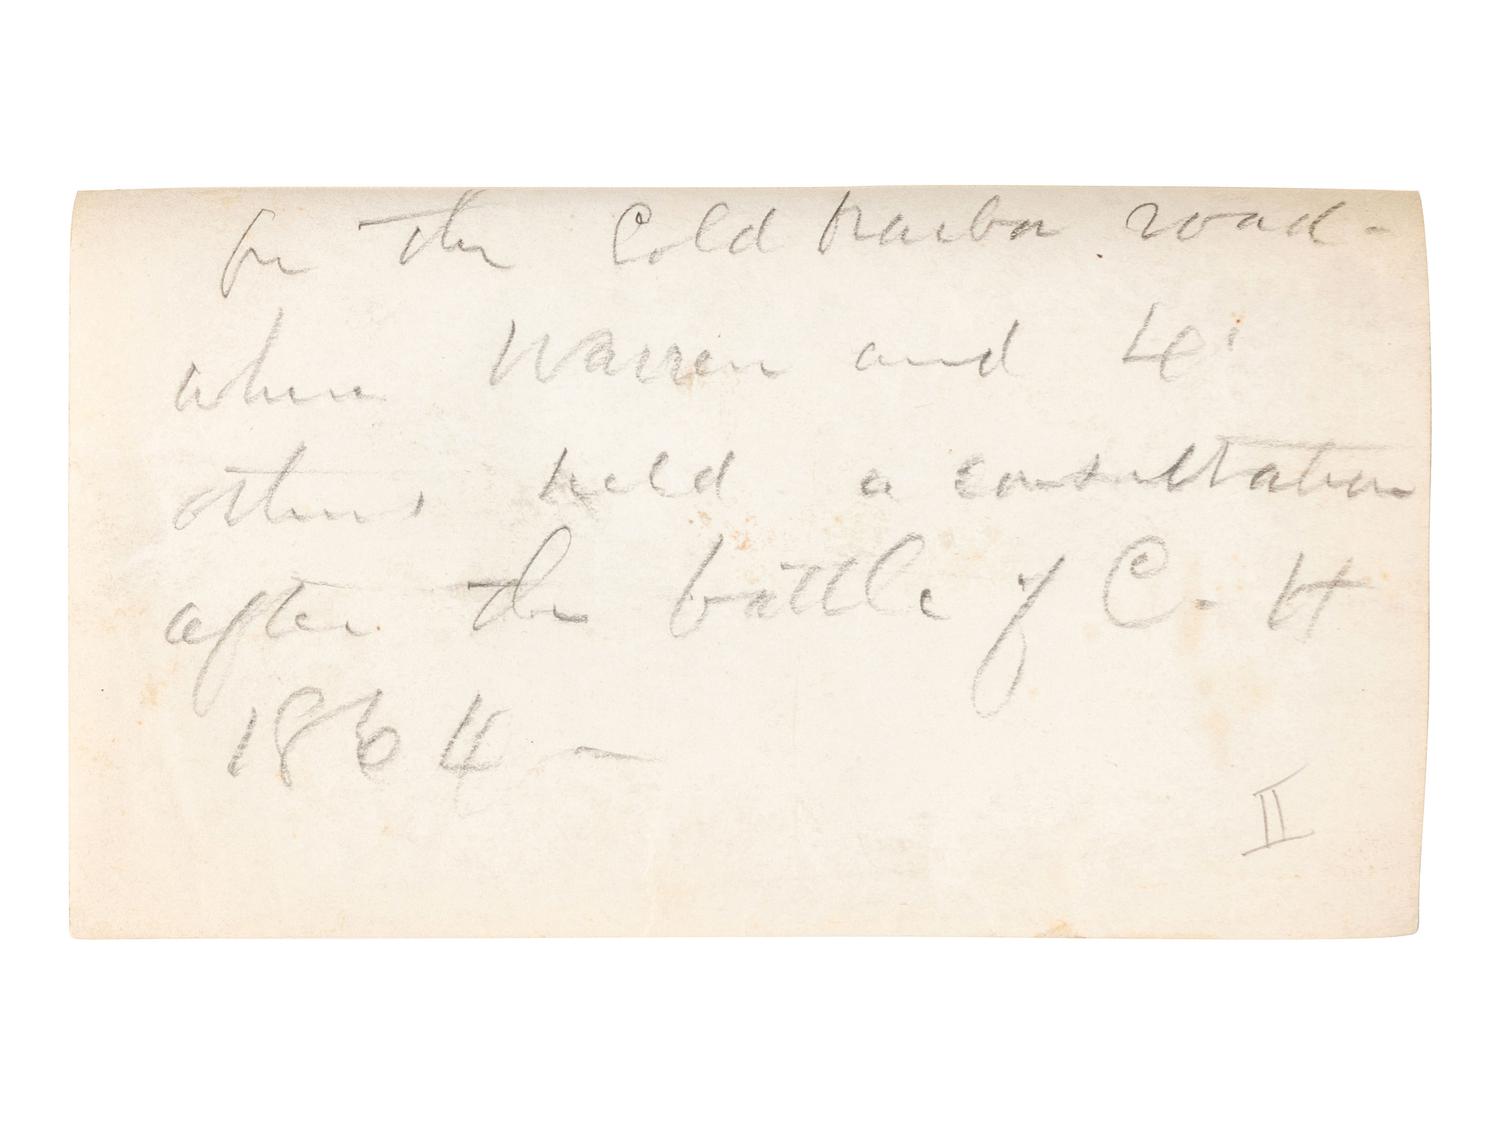 on the Cold Harbor road -
when Warren and 4
others held a consultation
after the battle of C. H
1864 —
II